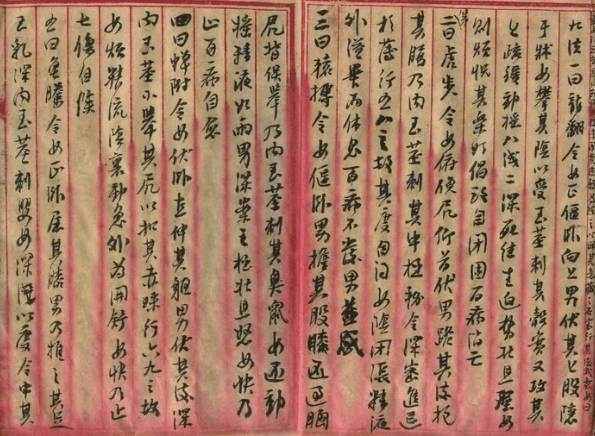 九法一曰龍翻令女正偃卧向上男伏其上股隱
于牀女攀其陰以受玉莖刺其穀實又攻其
上疏緩動搖八淺二深死往生返勢壯且強女
則煩悦其樂如倡致自閉固百病消亡
二曰虎步令女俯俛尻仰首伏男跪其後抱
其腹乃内玉莖刺其中極務令深密進退
相薄行五八之數其度自得女陰閉張精液
外溢畢而休息百病不發男益盛
三曰猿搏令女偃卧男擔其股膝還過胸
尻背俱舉乃内玉莖刺其臭鼠女還動
搖精液如雨男深案之極壯且怒女快乃
止百病自愈
四曰蟬附令女伏卧直伸其軀男伏其後深
内玉莖小舉其尻以扣其赤珠行六九之數
女煩精流陰裏動急外為開舒女快乃止
七傷自除
五曰龜騰令女正卧屈其膝男乃推之其足
至乳深内玉莖刺嬰女深淺以度令中其